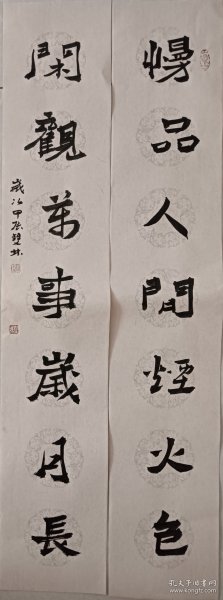 慢品人間煙火色
閑觀萬事歲月長
歲次甲辰
孔夫子旧书网